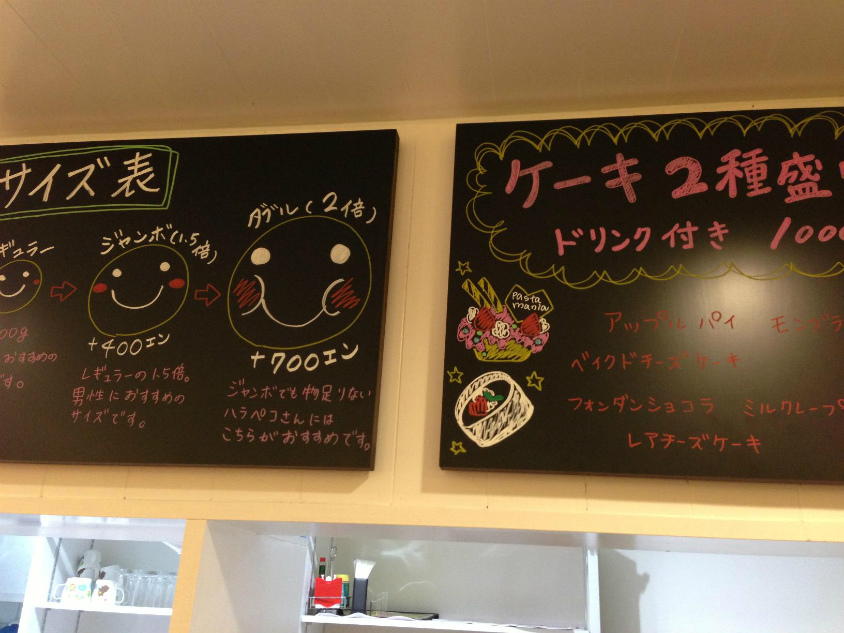 サイズ表
ギュラー
ジャンボ(1.5倍)
ダブル(2倍)
00g
おすすめの
です。
+400エン
レギュラーの1.5倍。
男性におすすめの
サイズです。
+700エン
ジャンボでも物足りない
ハラペコさんには
こちらがおすすめです。
ケーキ2種盛り
ドリンク付き 1000
Pasta
mania
アップルパイ モンブラ
ベイクドチーズケーキ
フォンダンショコラ ミルクレープ
レアチーズケーキ